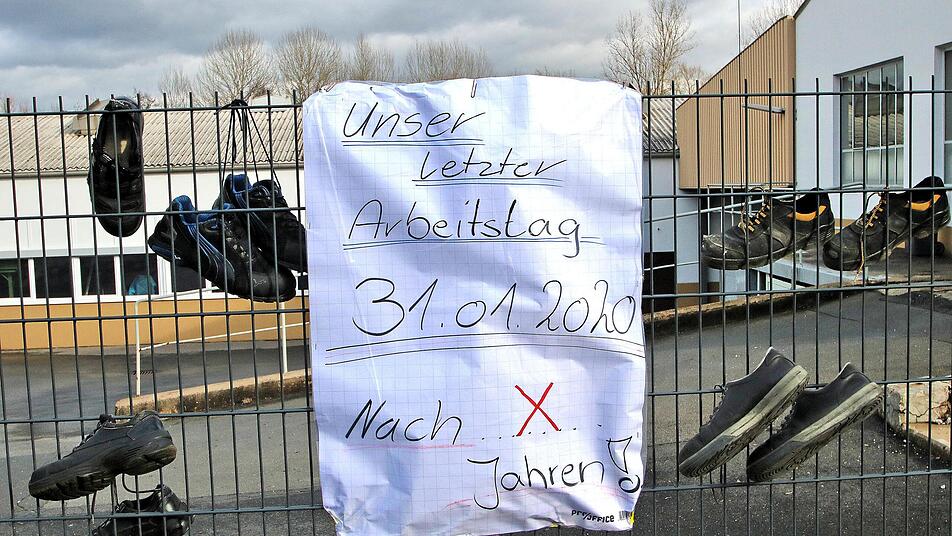 Unser
Letzter
Arbeitstag
31.01.2020
Nach ... X ...
Jahren!